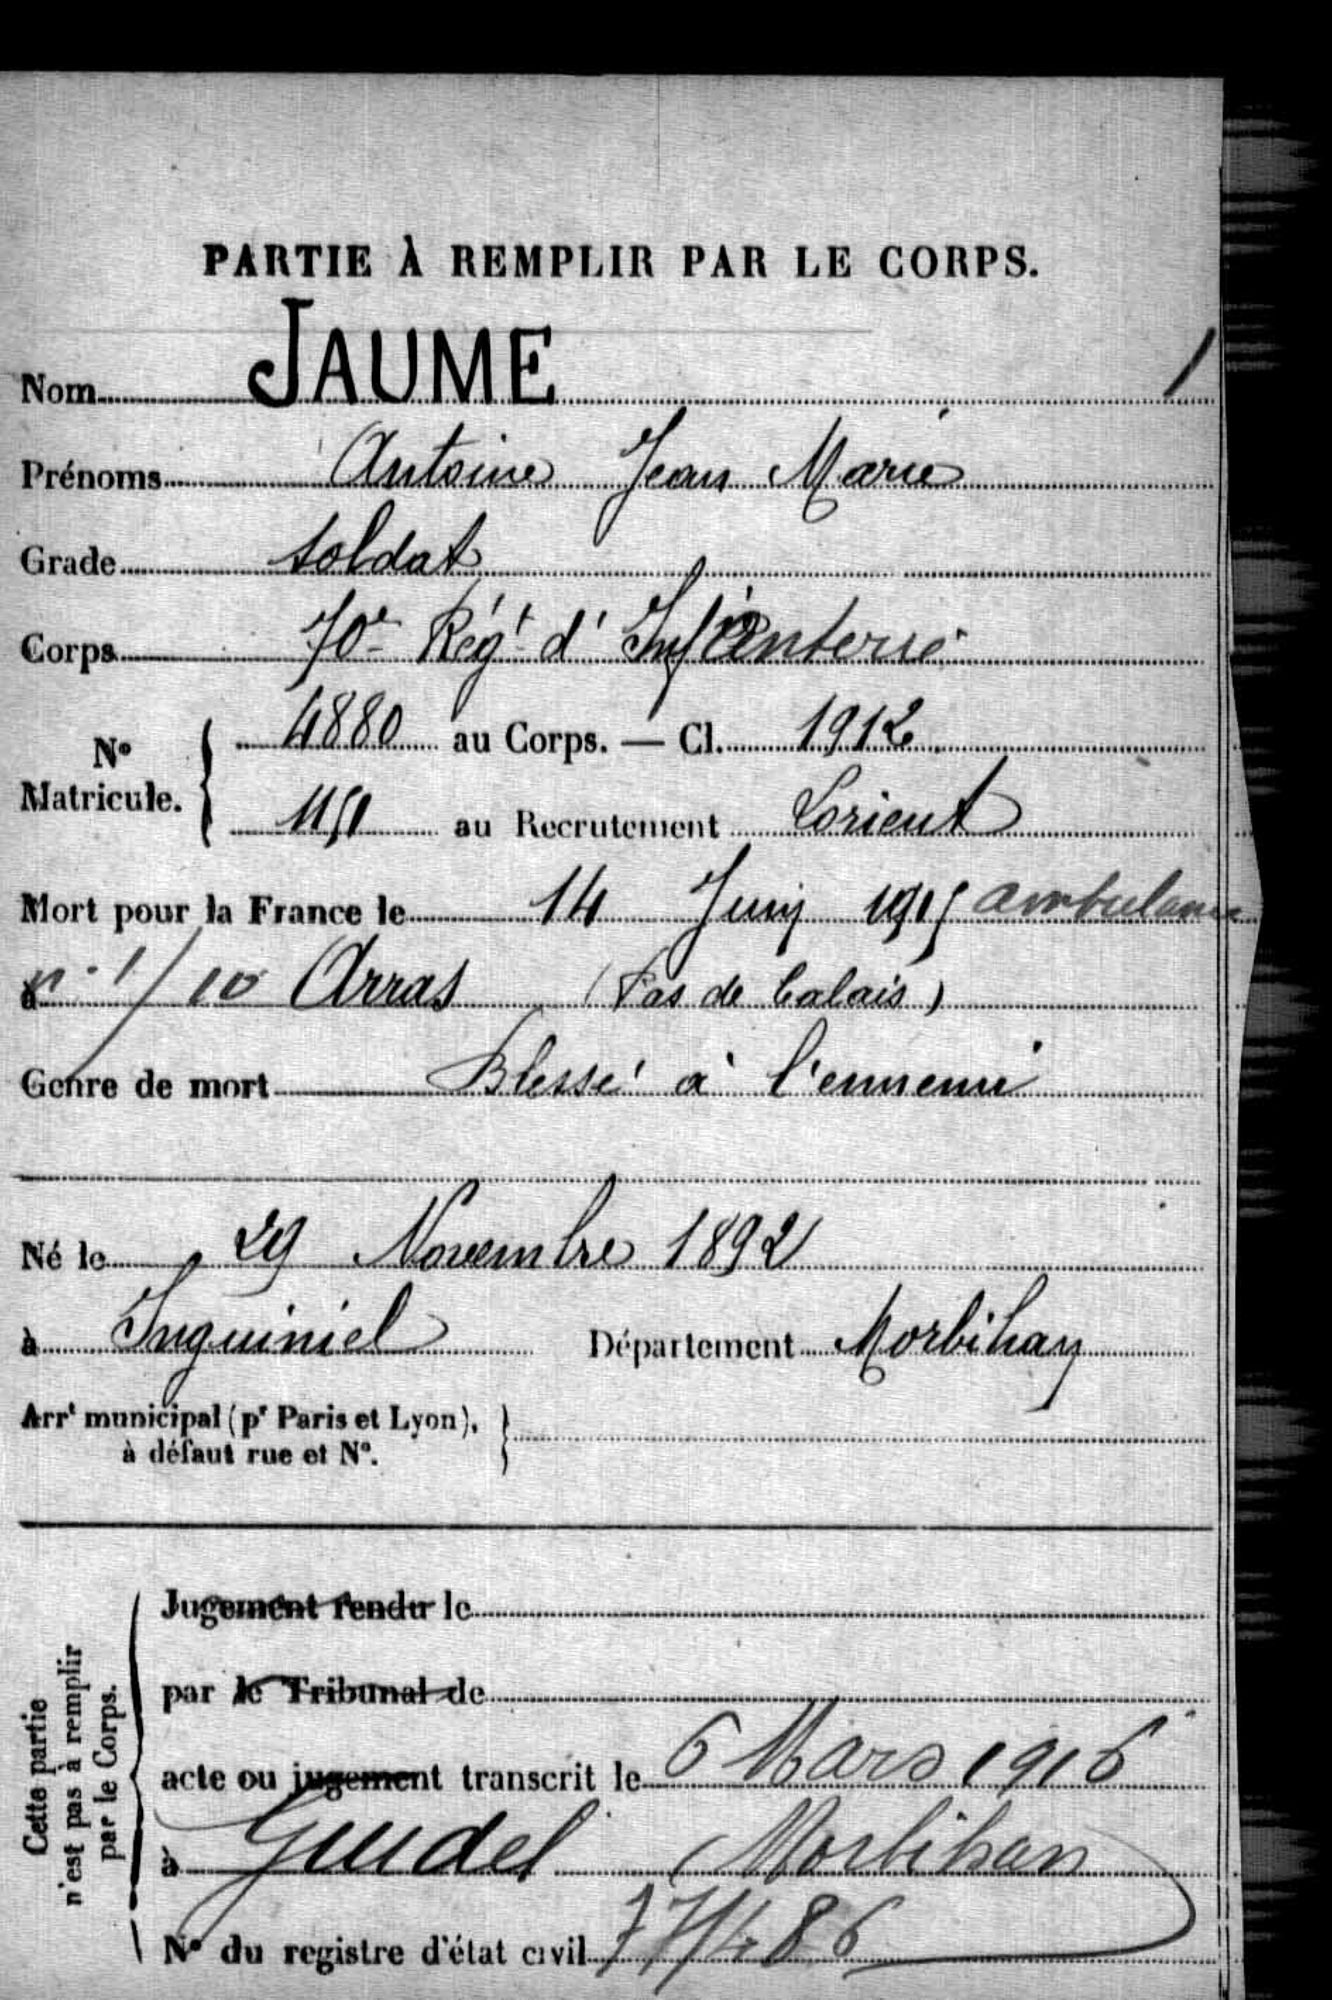 PARTIE À REMPLIR PAR LE CORPS.
Nom JAUME 1
Prénoms Antoine Jean Marie
Grade soldat
Corps 70e Régt d'Infanterie
No Matricule. 4880 au Corps. — Cl. 1912
1151 au Recrutement Lorient
Mort pour la France le 14 Juin 1915 ambulance
à n° 1/10 Arras (Pas de Calais)
Genre de mort Blessé à l'ennemi
Né le 29 Novembre 1892
à Inguiniel Département Morbihan
Arrt municipal (pr Paris et Lyon),
à défaut rue et No.
Cette partie
n'est pas à remplir
par le Corps.
Jugement rendu le
par le Tribunal de
acte ou jugement transcrit le 6 Mars 1916
à Guidel (Morbihan
No du registre d'état civil